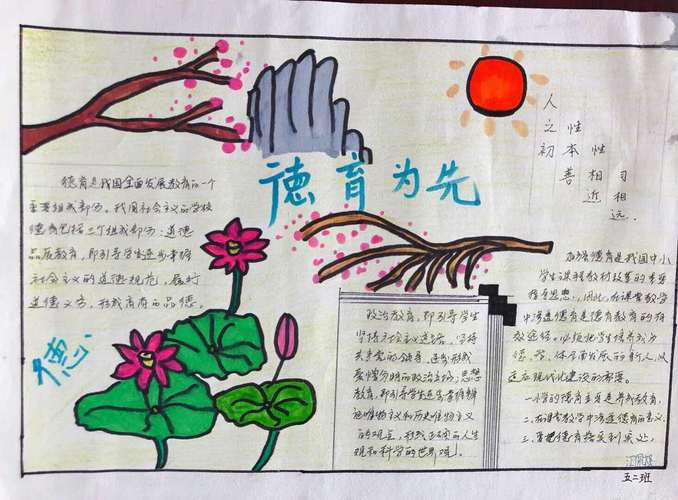 德育为先
人
之性
初本性
善相习
近相
远。
德育是我国全面发展教育的一个
主要组成部分。我国社会主义的学校
德育包括三个组成部分：道德
品质教育，即引导学生逐步掌握
社会主义的道德规范，履行
道德义务，形成高尚的品德。
德
政治教育，即引导学生
坚持社会主义道路，坚持
共产党的领导，逐步形成
爱憎分明的政治立场；思想
教育，即引导学生逐步掌握辩证
唯物主义和历史唯物主义
的观点，形成正确的人生
观和科学的世界观。
德育是我国中小
学生课程教材改革的重要
指导思想，因此，在课堂教学
中渗透德育是德育教育的有
效途径。必须把学生培养成为
德、学、体全面发展的新人，以
适应现代化建设的需要。
一、小学的德育主要是养成教育，
二、在课堂教学中渗透德育的意义，
三、掌把德育落实到实处，
五二班